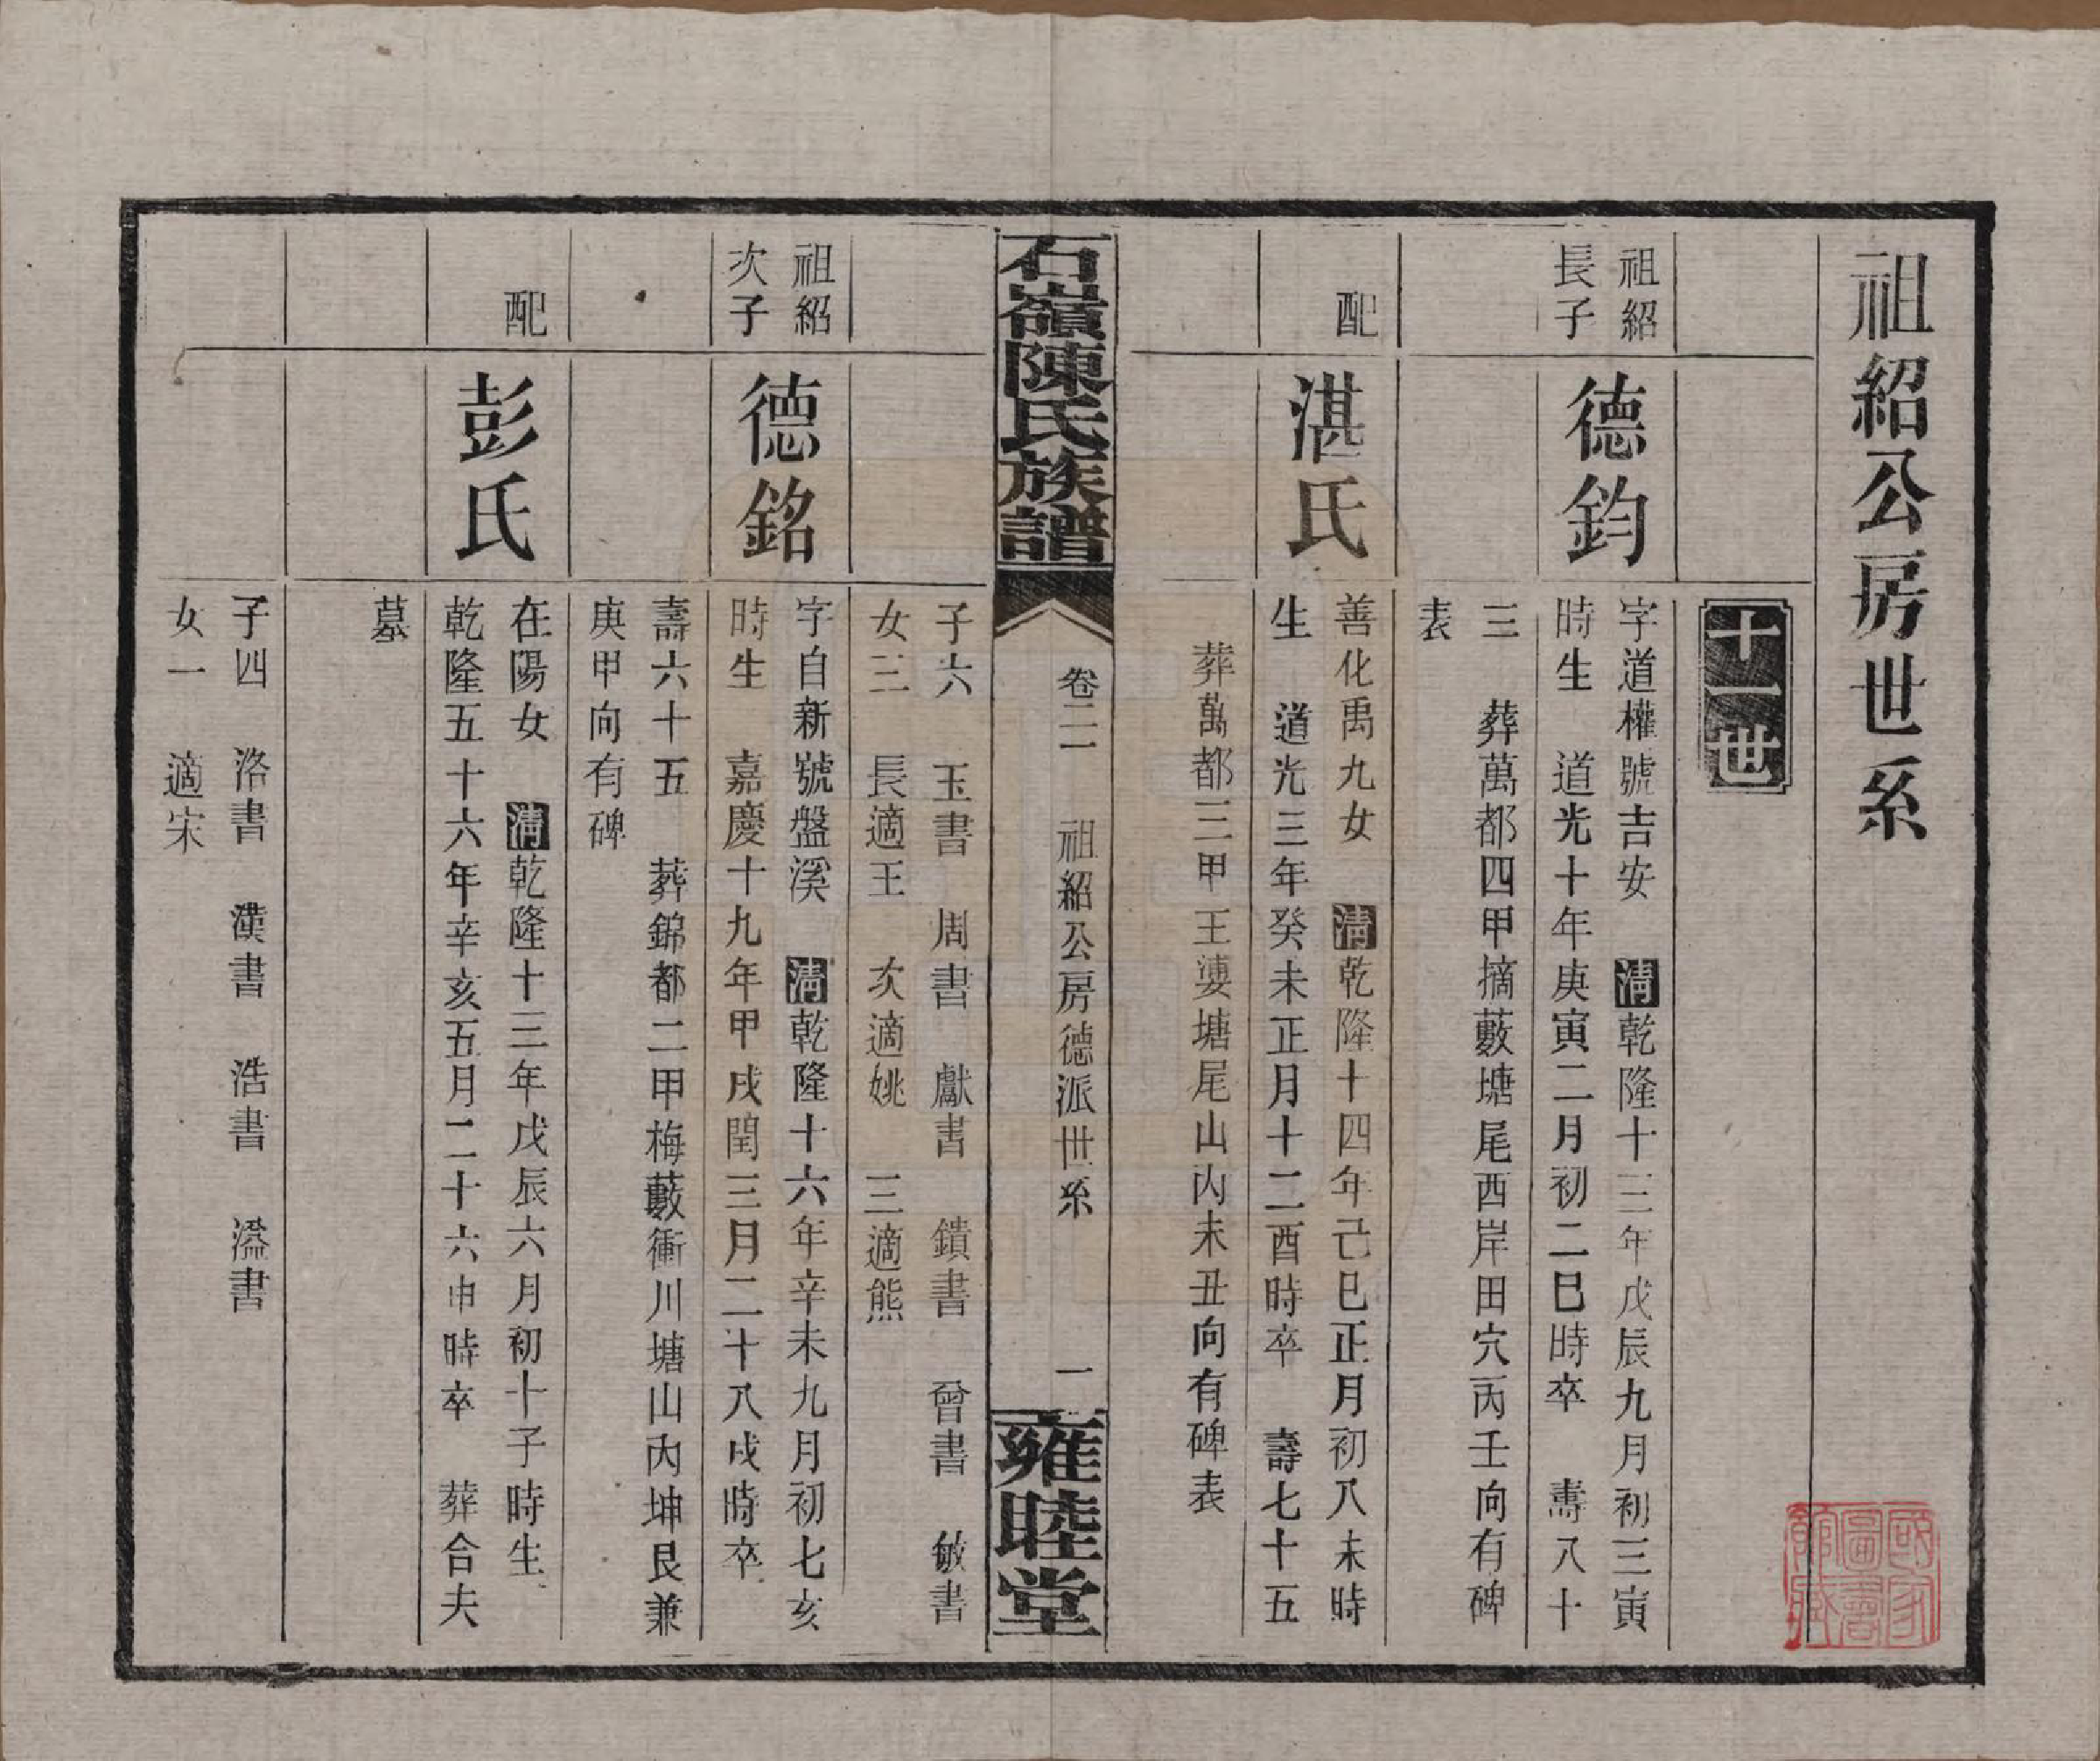 祖紹公房世系
十一世
祖紹
長子
德鈞
字道權號吉安　清乾隆十三年戊辰九月初三寅
時生　道光十年庚寅二月初二巳時卒　壽八十
三　葬萬都四甲摘藪塘尾西岸田穴丙壬向有碑
表
配
湛氏
善化禹九女　清乾隆十四年己巳正月初八未時
生　道光三年癸未正月十二酉時卒　壽七十五
葬萬都三甲王婆塘尾山內未丑向有碑表
石嶺陳氏族譜
卷二　祖紹公房德派世系　一
雍睦堂
子六　玉書　周書　獻書　鐀書　曾書　敏書
女三　長適王　次適姚　三適熊
祖紹
次子
德銘
字自新號盤溪　清乾隆十六年辛未九月初七亥
時生　嘉慶十九年甲戌閏三月二十八戌時卒
壽六十五　葬錦都二甲梅藪衝川塘山內坤艮兼
庚甲向有碑
配
彭氏
在陽女　清乾隆十三年戊辰六月初十子時生
乾隆五十六年辛亥五月二十六申時卒　葬合夫
墓
子四　洛書　漢書　浩書　溢書
女一　適宋
國家
圖書
館藏